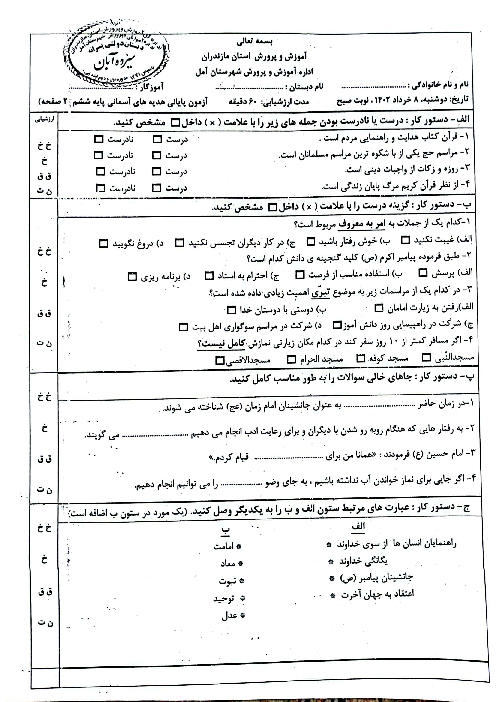 بسمه تعالی
آموزش و پرورش استان مازندران
اداره آموزش و پرورش شهرستان آمل
سیزده آبان
نام و نام خانوادگی: نام دبستان: آموزگار:
تاریخ: دوشنبه، ۸ خرداد ۱۴۰۲، نوبت صبح مدت ارزشیابی: ۶۰ دقیقه آزمون پایانی هدیه های آسمانی پایه ششم (۲ صفحه)
ارزشیابی
الف- دستور کار: درست یا نادرست بودن جمله های زیر را با علامت (×) داخل □ مشخص کنید.
۱- قرآن کتاب هدایت و راهنمایی مردم است. درست □ نادرست □ خ خ
۲- مراسم حج یکی از با شکوه ترین مراسم مسلمانان است. درست □ نادرست □ خ
۳- روزه و زکات از واجبات دینی است. درست □ نادرست □ ق ق
۴- از نظر قرآن کریم مرگ پایان زندگی است. درست □ نادرست □ ن ت
ب- دستور کار: گزینه درست را با علامت (×) داخل □ مشخص کنید.
۱- کدام یک از جملات به امر به معروف مربوط است؟
الف) غیبت نکنید □ ب) خوش رفتار باشید □ ج) در کار دیگران تجسس نکنید □ د) دروغ نگویید □ خ خ
۲- طبق فرموده پیامبر اکرم (ص) کلید گنجینه ی دانش کدام است؟
الف) پرسش □ ب) استفاده مناسب از فرصت □ ج) احترام به استاد □ د) برنامه ریزی □ خ
۳- در کدام یک از مراسمات زیر به موضوع تبرّی اهمیت زیادی داده شده است؟
الف) رفتن به زیارت امامان □ ب) دوستی با دوستان خدا □ ق ق
ج) شرکت در راهپیمایی روز دانش آموز □ د) شرکت در مراسم سوگواری اهل بیت □
۴- اگر مسافر کمتر از ۱۰ روز سفر کند در کدام مکان زیارتی نمازش کامل نیست؟ ن ت
مسجدالنّبی □ مسجد کوفه □ مسجد الحرام □ مسجدالاقصی □
پ- دستور کار: جاهای خالی سوالات را به طور مناسب کامل کنید.
۱- در زمان حاضر .................... به عنوان جانشینان امام زمان (عج) شناخته می شوند. خ خ
۲- به رفتار هایی که هنگام روبه رو شدن با دیگران و برای رعایت ادب انجام می دهیم .................... می گویند. خ
۳- امام حسین (ع) فرمودند: «همانا من برای .................... قیام کردم.» ق ق
۴- اگر جایی برای نماز خواندن آب نداشته باشیم، به جای وضو .................... را می توانیم انجام دهیم. ن ت
ج- دستور کار: عبارت های مرتبط ستون الف و ب را به یکدیگر وصل کنید. (یک مورد در ستون ب اضافه است)
الف ب خ خ
راهنمایان انسان ها از سوی خداوند * * امامت
یگانگی خداوند * * معاد خ
جانشینان پیامبر (ص) * * نبوت
اعتقاد به جهان آخرت * * توحید ق ق
* عدل ن ت